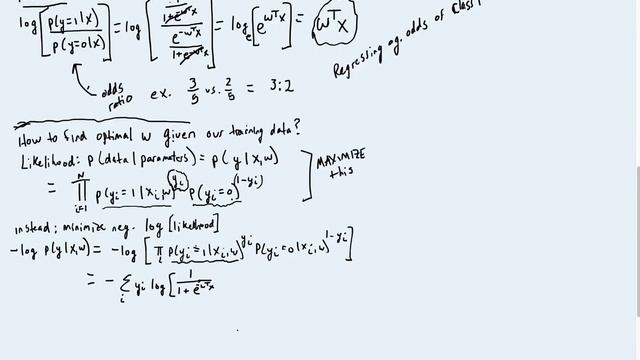 log [ p(y=1|x) / p(y=0|x) ] = log [ 1/(1+e^{-w^T x}) / e^{-w^T x}/(1+e^{-w^T x}) ] = log_e [ e^{w^T x} ] = w^T x
Regressing log odds of class 1
odds ratio ex. 3/5 vs. 2/5 = 3:2
How to find optimal w given our training data?
Likelihood: p(data | parameters) = p(y|x,w)
= ∏_{i=1}^{N} p(y_i=1|x_i,w)^{y_i} p(y_i=0)^{(1-y_i)}
MAXIMIZE this
instead; minimize neg. log [likelihood]
-log p(y|x,w) = -log [ ∏_i p(y_i=1|x_i,w)^{y_i} p(y_i=0|x_i,w)^{1-y_i} ]
= - ∑_i y_i log [ 1/(1+e^{-w^T x}